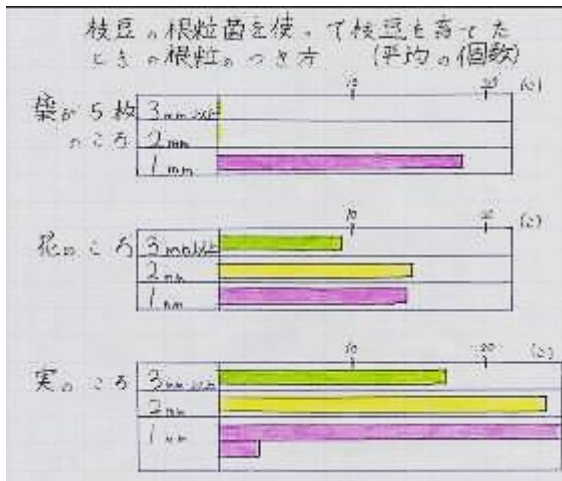 枝豆の根粒菌を使って枝豆を育てた
ときの根粒のつき方 (平均の個数)
10 20 (こ)
葉が5枚 3mm以上
のころ 2mm
1mm
10 20 (こ)
花のころ 3mm以上
2mm
1mm
10 20 (こ)
実のころ 3mm以上
2mm
1mm